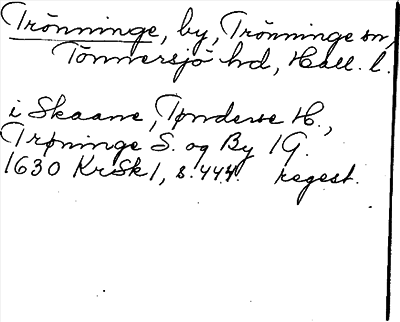 Trönninge, by, Trönninge sn,
Tönnersjö hd, Hall. l.
i Skaane, Tønderse H.,
Trøninge S. og By 1G.
1630 KrSk1, s. 444. regest.